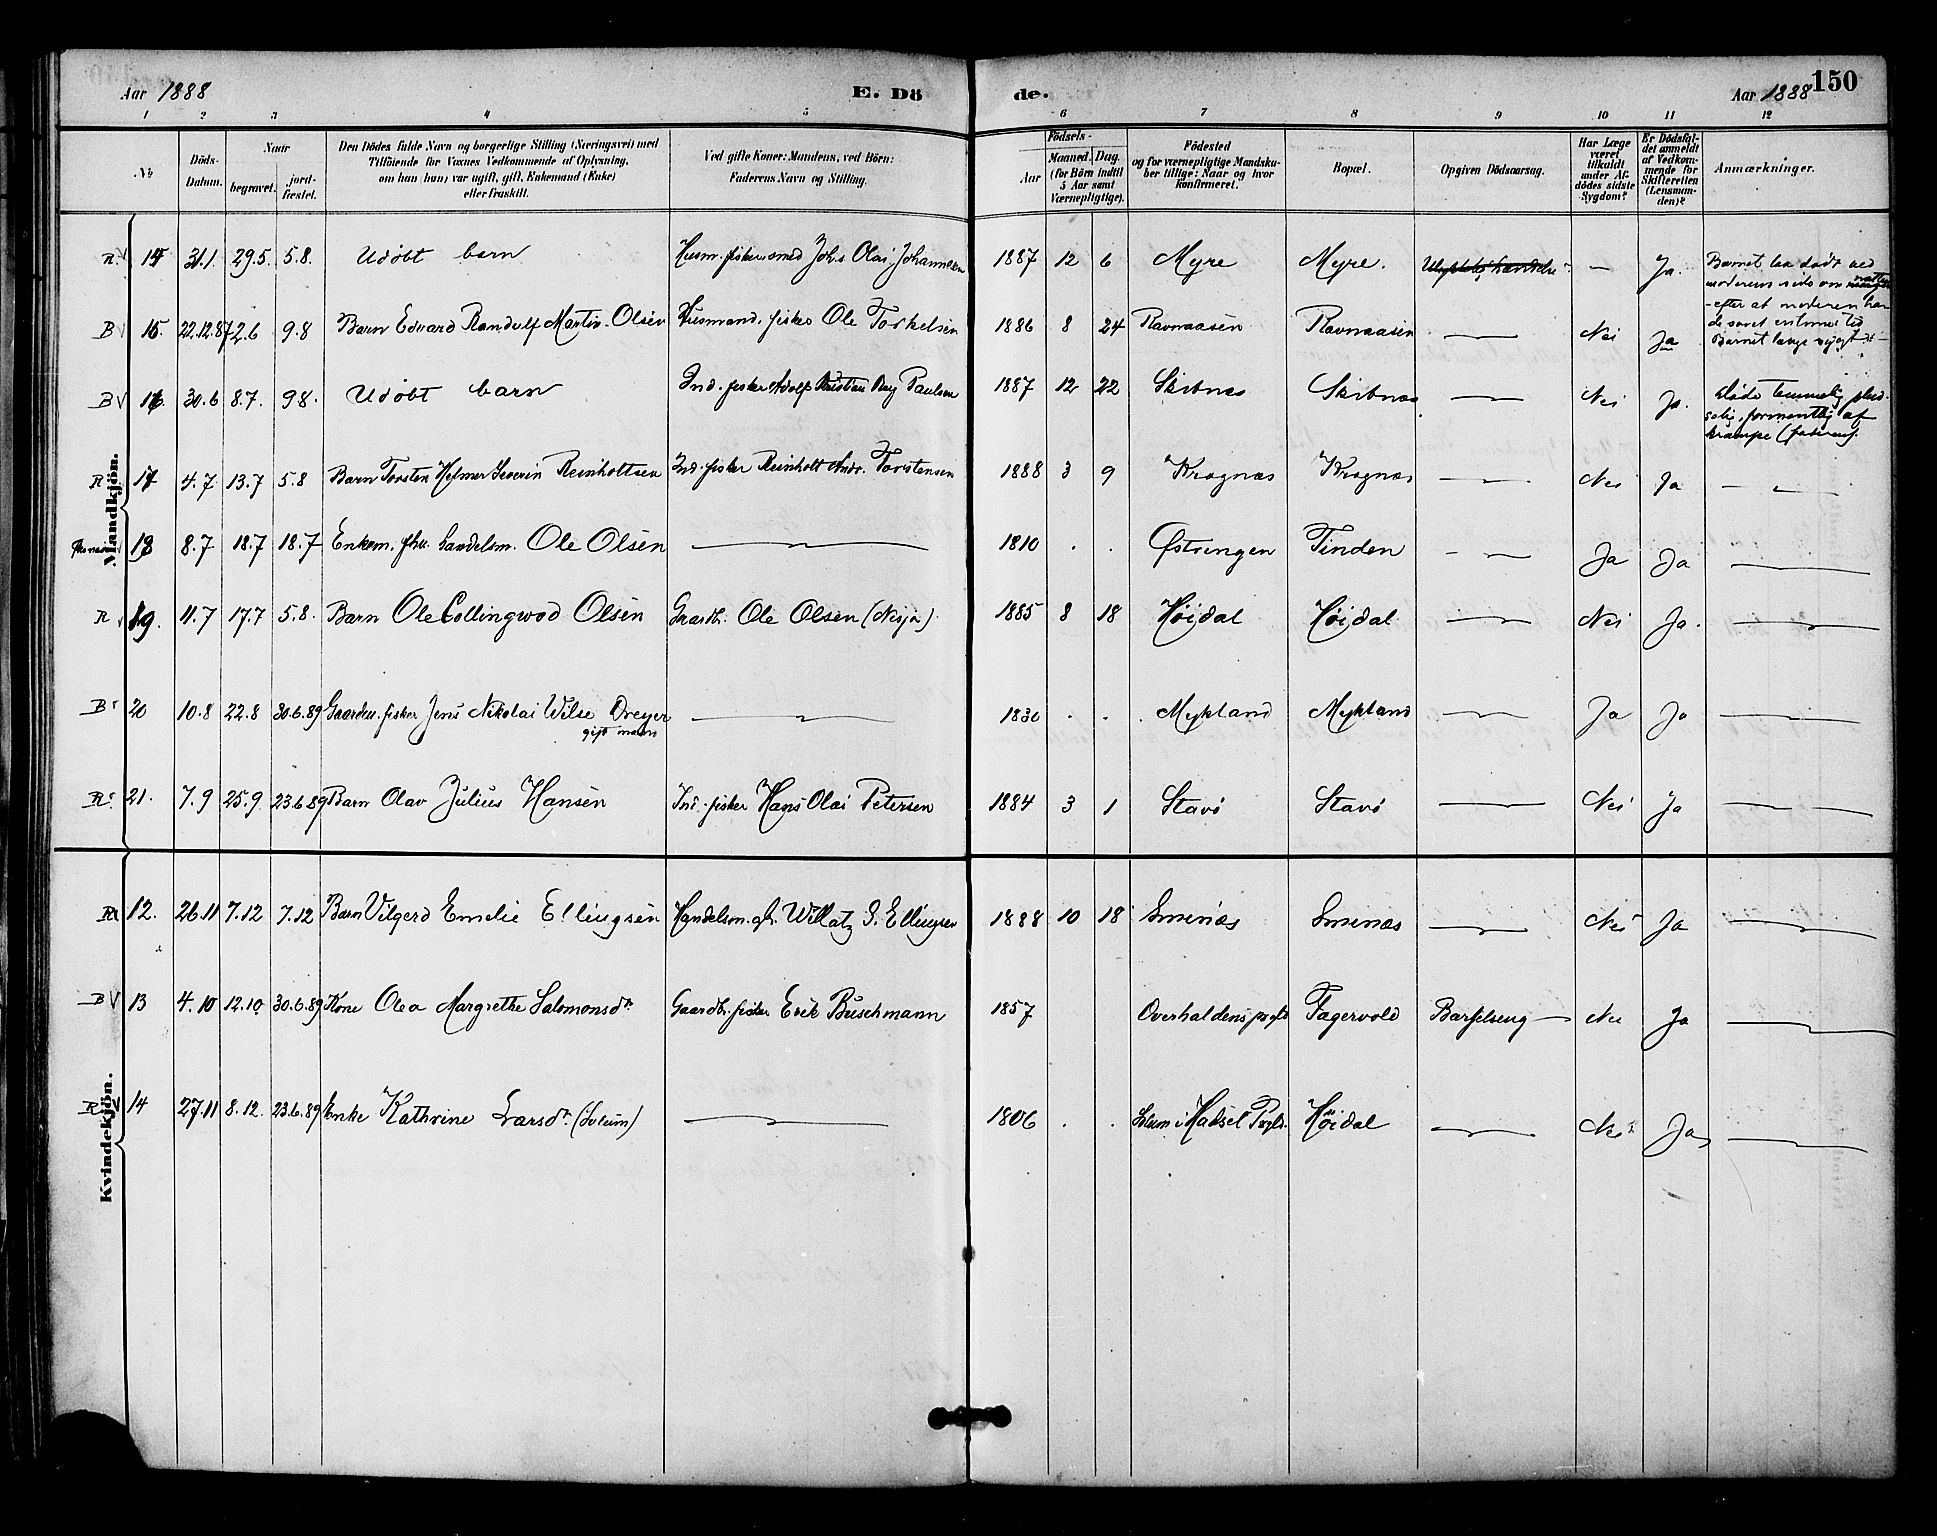 Aar 1888 E. Dö de. Aar 1888 150
1 2 3 4 5 6 7 8 9 10 11 12
No
Döds-Datum.
Naar
begravet.
jord-fæstet.
Den Dödes fulde Navn og borgerlige Stilling (Næringsvei) med
Tilföiende for Voxnes Vedkommende af Oplysning,
om han (hun) var ugift, gift, Enkemand (Enke)
eller fraskilt.
Ved gifte Koner: Mandens, ved Börn:
Faderens Navn og Stilling.
Födsels-
Aar
Maaned. Dag.
(for Börn indtil
5 Aar samt
Værnepligtige).
Födested
og for værnepligtige Mandsku-
ber tillige: Naar og hvor
konfirmeret.
Bopæl.
Opgiven Dödsaarsag.
Har Læge
været
tilkaldt
under Af-
dödes sidste
Sygdom?
Er Dödsfal-
det anmeldt
af Vedkom-
mende for
Skifteretten
(Lensman-
den)?
Anmærkninger.
Mandkjön.
R. 14 31.1. 29.5. 5.8. Udøbt barn Husm. fisker smed Johs Olai Johannesen 1887 12 6 Myre Myre. — Ja. Barnet laa dødt ved
moderens side om natten
- efter at moderen hav
de sovet en times tid
B 15. 22.12.87 2.6 9.8 Barn Edvard Randulf Martin Olsen Husmand. fisker Ole Torkelsen 1886 8 24 Ravnaasen Ravnaasen — Nei Ja Barnet længe sygt
B 16. 30.6 8.7. 9.8. Udøbt barn Ind. fisker Adolf Kristian Paulsen 1887 12 22 Skibnæs Skibnæs — Nei Ja. Døde temmelig plud-
selig, formentlig af
krampe
R 17 4.7 13.7 5.8 Barn Torsten Helmer Severin Reinholtsen Ind. fisker Reinholt Andr. Torstensen 1888 3 9 Kragnæs Kragnæs — Nei Ja —
18 8.7 18.7 18.7 Enkem. fhv. handelsm. Ole Olsen — 1810 . . Østringen Tinden — Ja Ja —
R 19. 11.7 17.7 5.8. Barn Ole Collingwod Olsen Gaardbr. Ole Olsen (Nesja) 1885 8 18 Høidal Høidal — Nei Ja. —
B 20 10.8 22.8 30.6.89 Gaardm. fisker Jens Nikolai Wilse Dreyer — 1830 . . Mykland Mykland — Ja Ja —
gift mann
R 21. 7.9 25.9. 23.6.89 Barn Olav Julius Hansen Ind. fisker Hans Olai Petersen 1884 3 1 Stavø Stavø — Nei Ja —
Kvindekjön.
R 12. 26.11 7.12 7.12 Barn Vilgerd Emelie Ellingsen Handelsm. Willatz S. Ellingsen 1888 10 18 Smines Sminæs — Nei Ja —
B 13 4.10 12.10 30.6.89 Kone Olea Margrethe Salomonsdtr Gaardbr. fisker Erik Buschmann 1857 Overhaldens prgld Fagervold Barselseng — Nei Ja —
R 14 27.11 8.12. 23.6.89 Enke Kathrine Larsdtr. — 1806 . . i Hadsel Prgld. Høidal — Nei Ja —